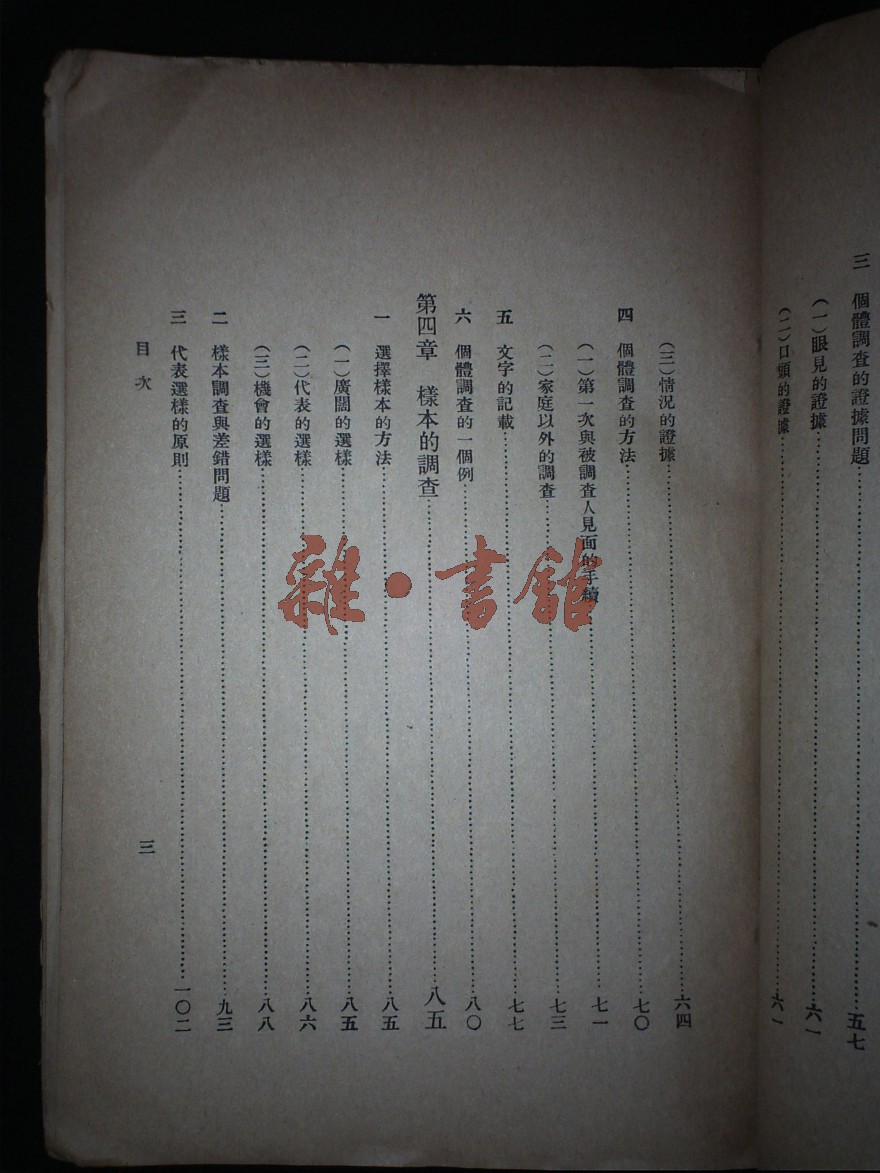 三　個體調查的證據問題……五七
（一）眼見的證據……六一
（二）口頭的證據……六一
（三）情況的證據……六四
四　個體調查的方法……七〇
（一）第一次與被調查人見面的手續……七一
（二）家庭以外的調查……七三
五　文字的記載……七七
六　個體調查的一個例……八〇
第四章　樣本的調查……八五
一　選擇樣本的方法……八五
（一）廣闊的選樣……八五
（二）代表的選樣……八六
（三）機會的選樣……八八
二　樣本調查與差錯問題……九三
三　代表選樣的原則……一〇二
目次　三
雜·書館